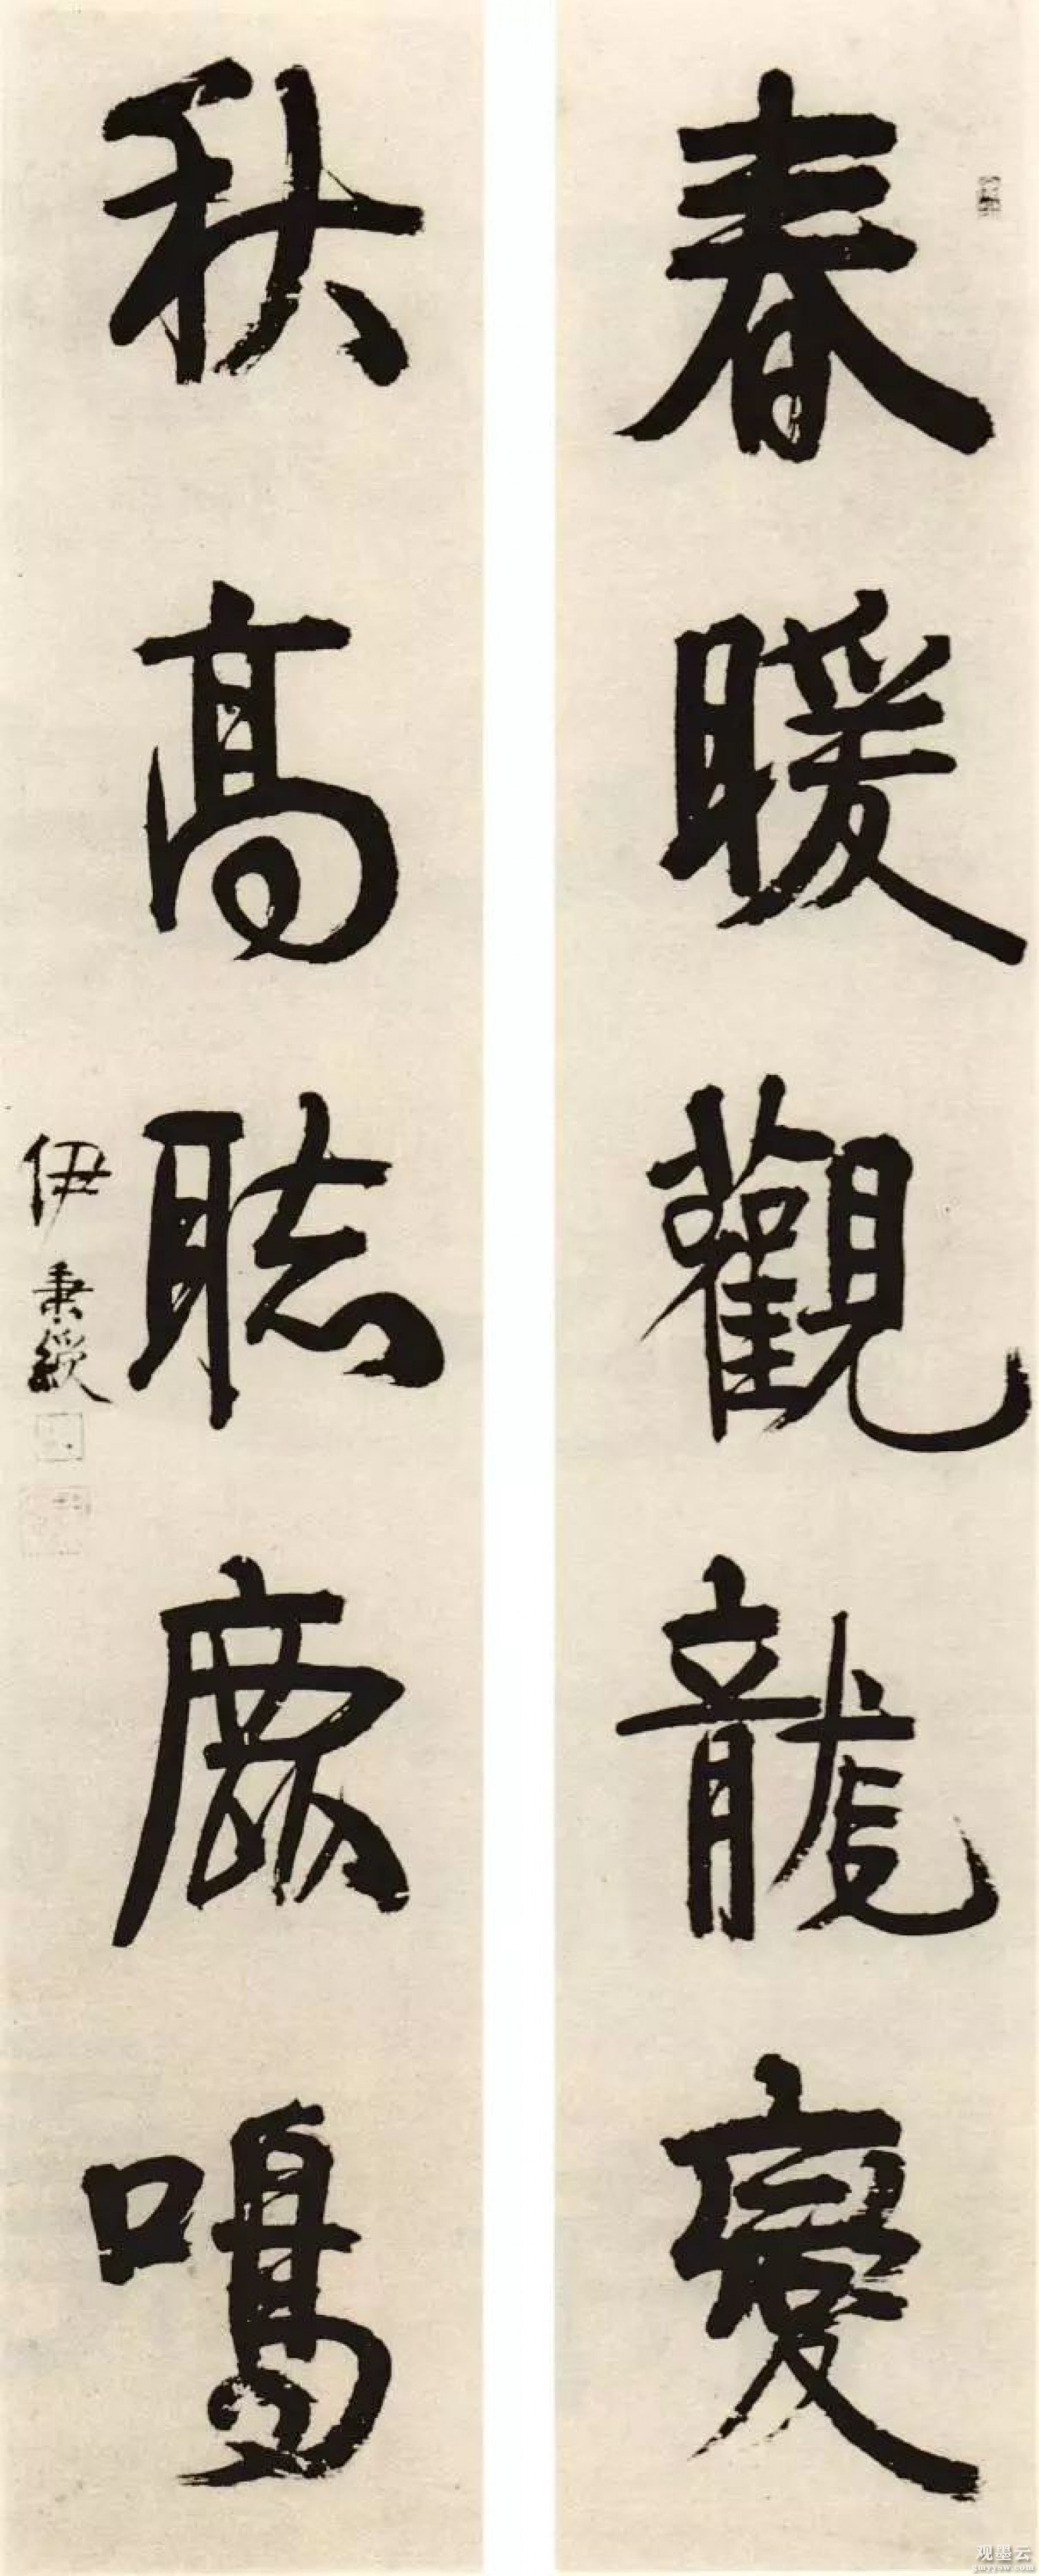 春暖觀龍變
秋高聽鹿鳴
伊秉綬
观墨云